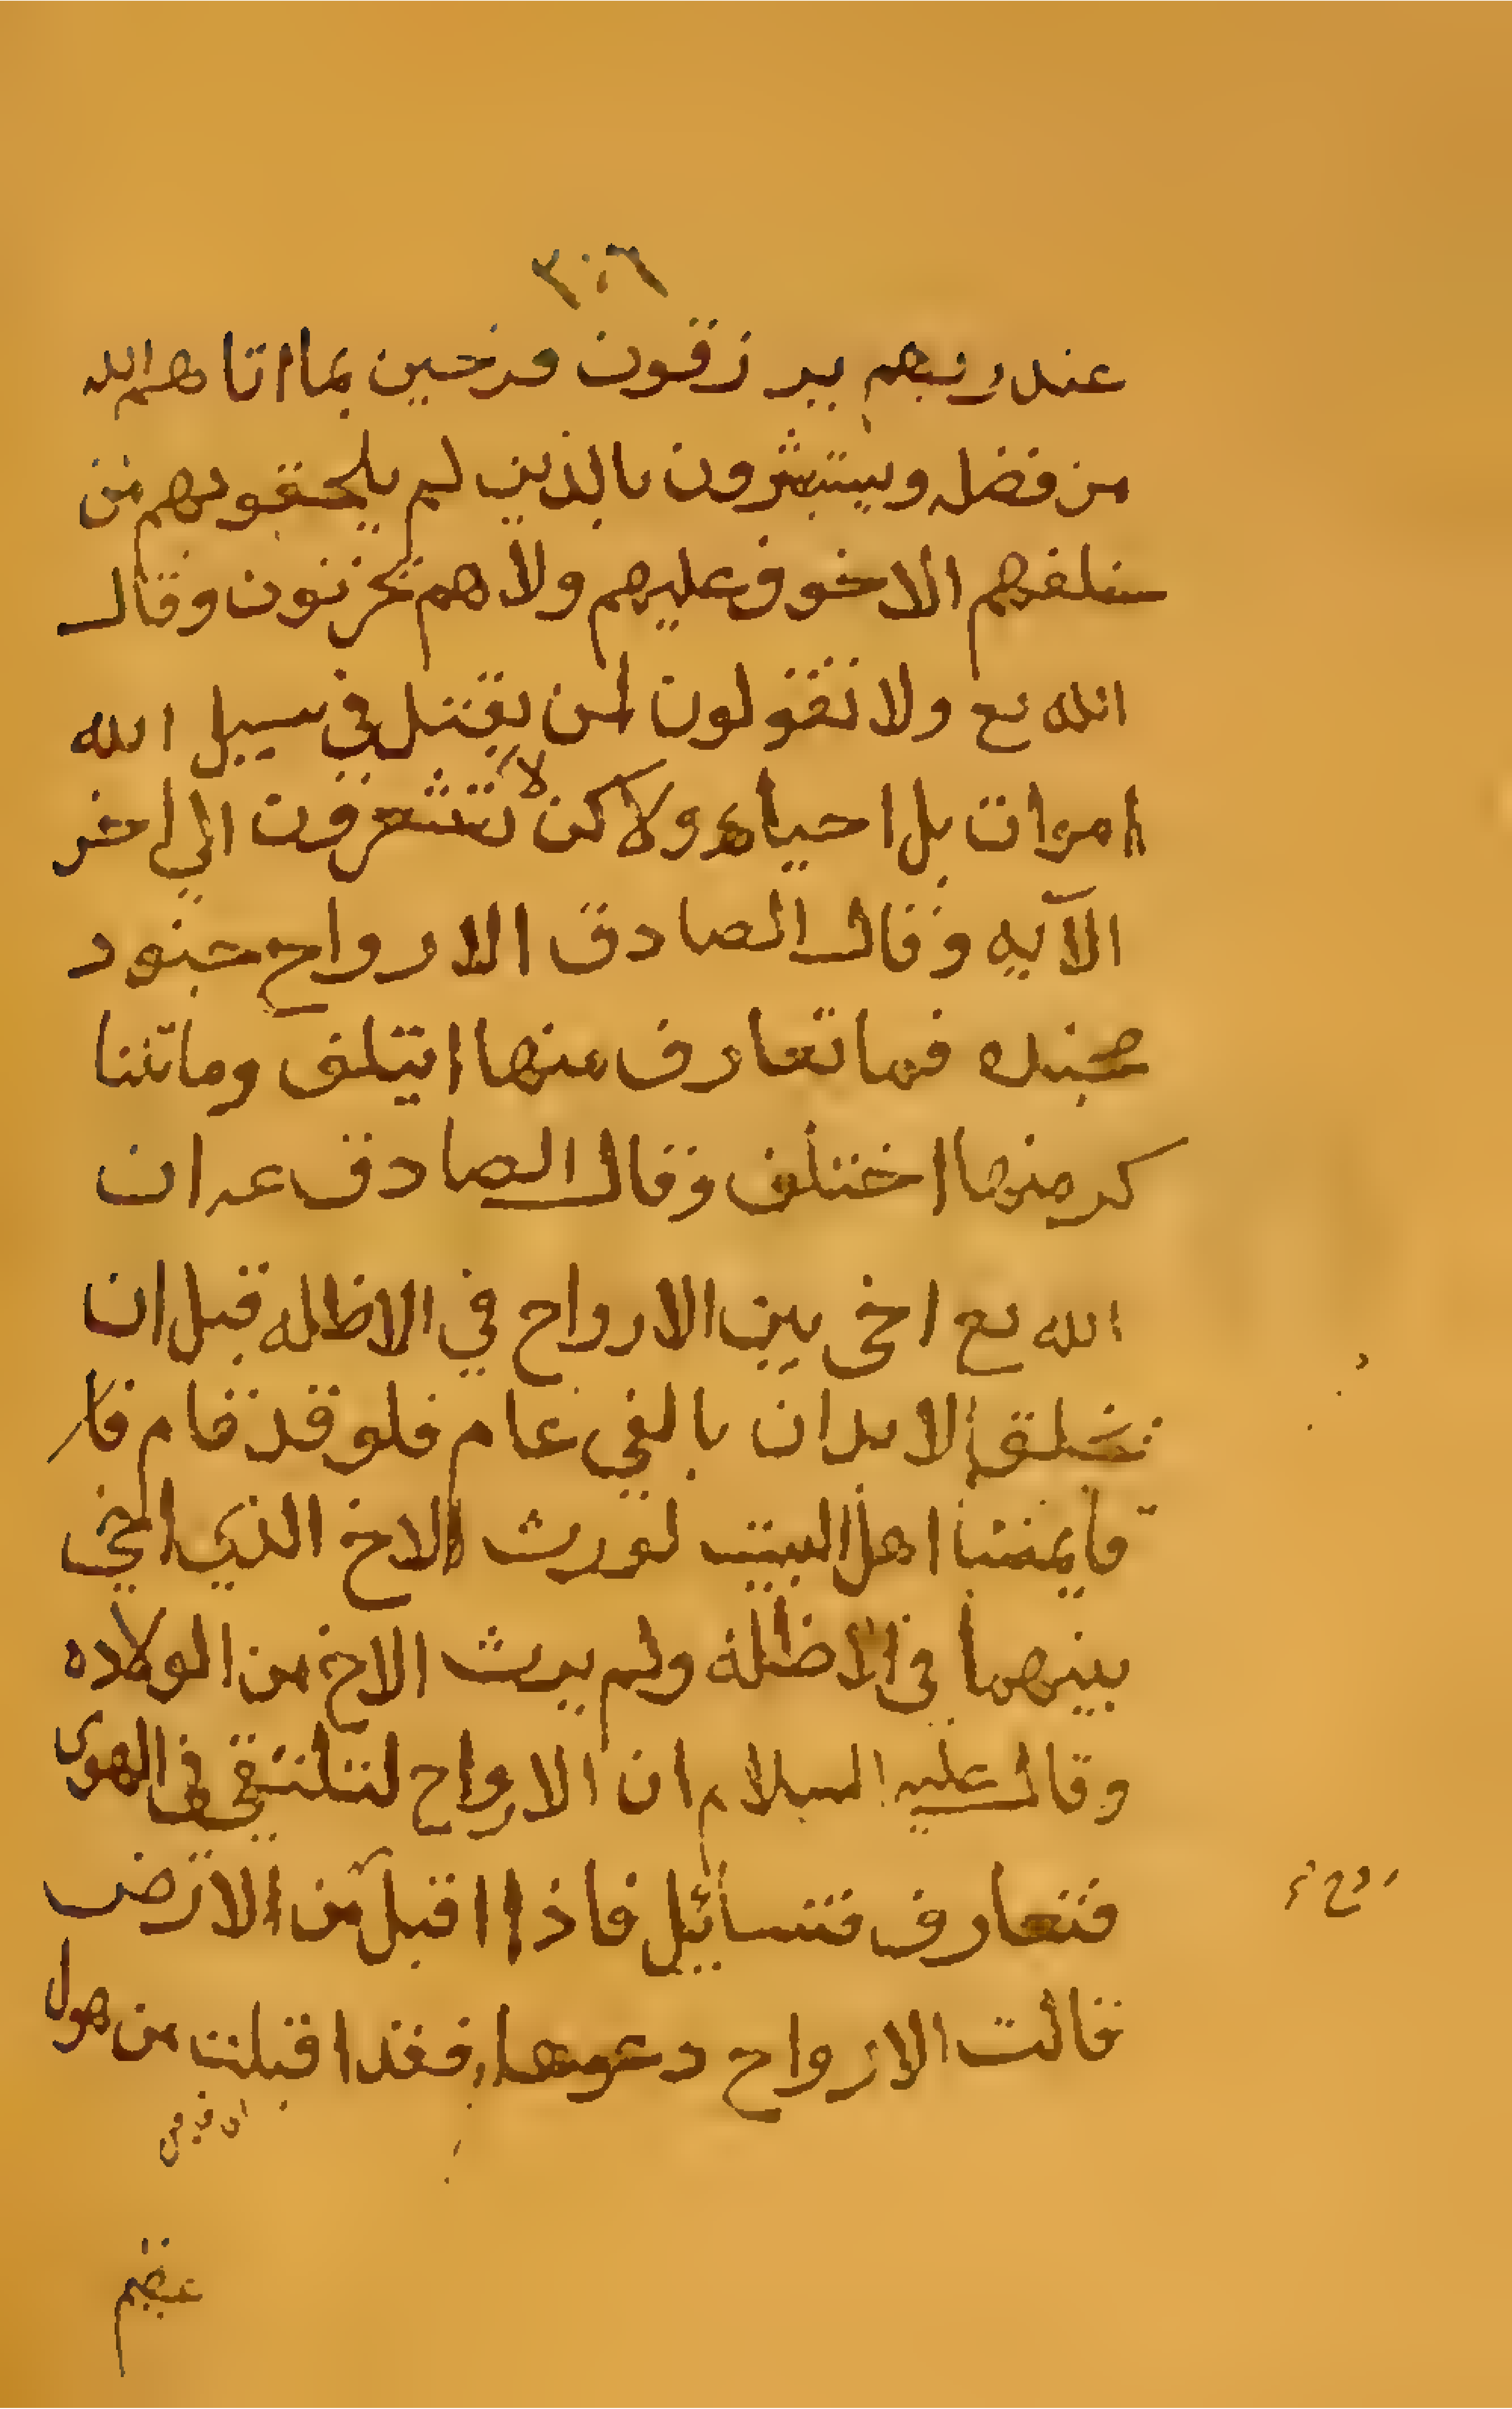 ٣٠٦
عند ربهم يرزقون فرحين بما اتاهم الله
من فضله ويستبشرون بالذين لم يلحقو بهم من
خلفهم الاخوف عليهم ولا هم يحزنون وقال
الله تع ولا تقولون لمن يقتل في سبيل الله
اموات بل احياء ولاكن لا تشعرون الى اخر
الآيه وقال الصادق الارواح جنود
مجنده فما تعارف منها ايتلف وما تنا
كر منها اختلف وقال الصادق عـ ان
الله تع اخى بين الارواح في الاظله قبل ان
تخلق الابدان بالفي عام فلو قد قام قا
قايمنا اهل البيت لورث الاخ الذي اخى
بينهما في الاظلة ولم يرث الاخ من الولاده
وقال عليه السلام ان الارواح لتلتقي في الهوى
فتعارف فتسائل فاذا اقبل من الارض
روح
قالت الارواح دعوها فقد اقبلت من هول
عظيم